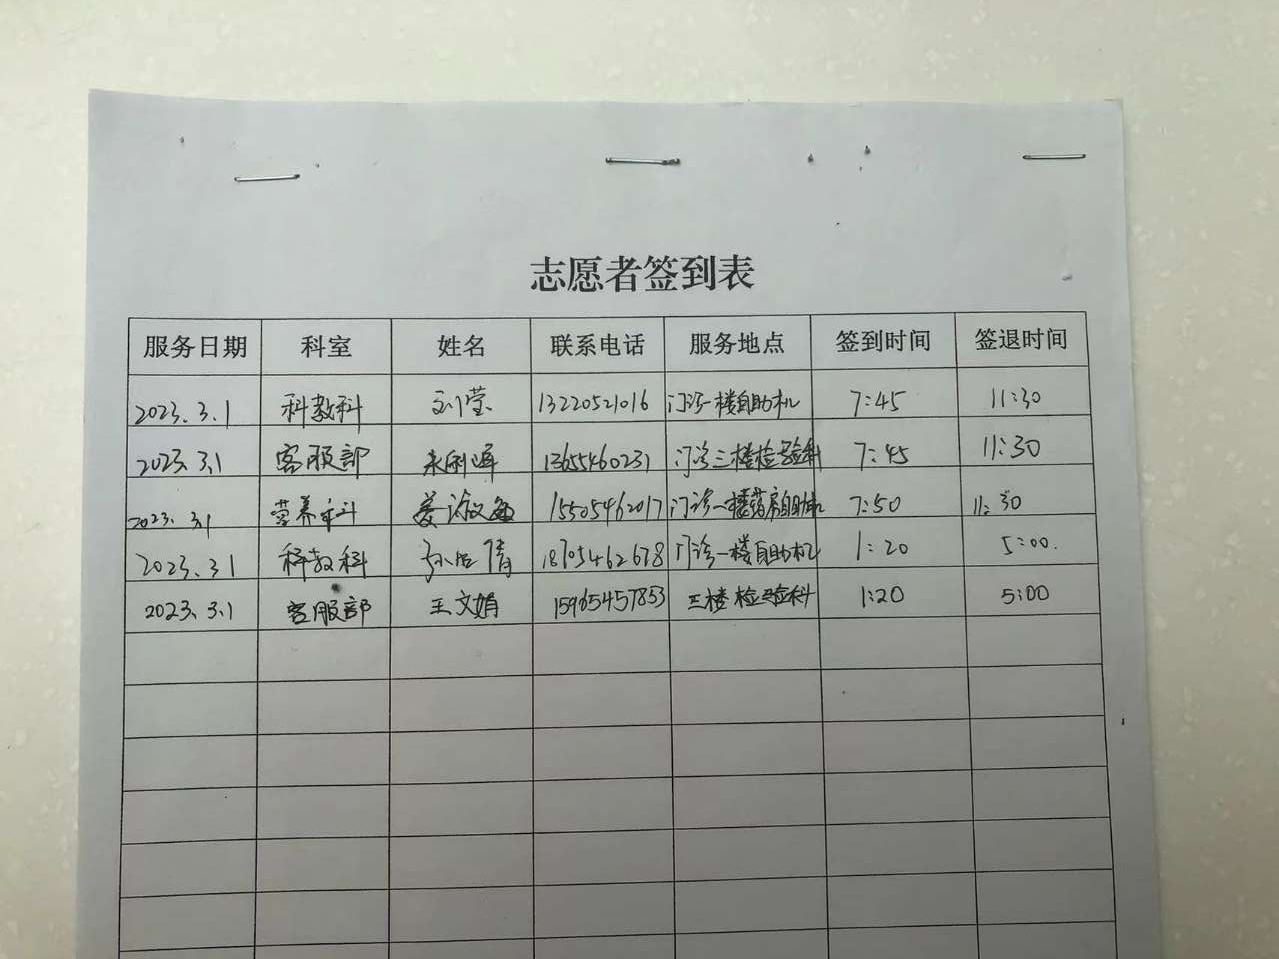 志愿者签到表
服务日期 科室 姓名 联系电话 服务地点 签到时间 签退时间
2023.3.1 科教科 刘莹 13220521016 门诊一楼自助机 7:45 11:30
2023.3.1 客服部 13655460231 门诊三楼检验科 7:45 11:30
2023.3.1 营养科 姜 15505462017 门诊一楼药房自助机 7:50 11:30
2023.3.1 科教科 倩 18705462678 门诊一楼自助机 1:20 5:00.
2023.3.1 客服部 王文娟 15965457853 三楼检验科 1:20 5:00